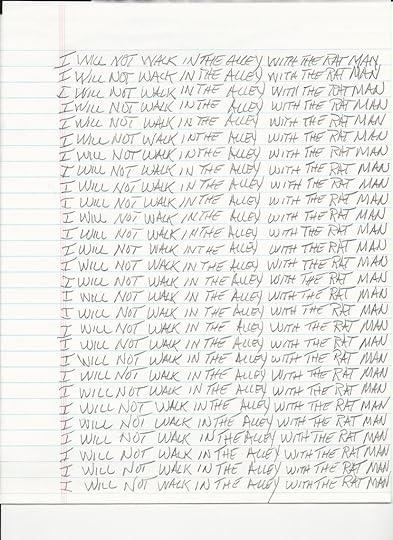 I WILL NOT WALK IN THE ALLEY WITH THE RAT MAN
I WILL NOT WALK IN THE ALLEY WITH THE RAT MAN
I WILL NOT WALK IN THE ALLEY WITH THE RAT MAN
I WILL NOT WALK IN THE ALLEY WITH THE RAT MAN
I WILL NOT WALK IN THE ALLEY WITH THE RAT MAN
I WILL NOT WALK IN THE ALLEY WITH THE RAT MAN
I WILL NOT WALK IN THE ALLEY WITH THE RAT MAN
I WILL NOT WALK IN THE ALLEY WITH THE RAT MAN
I WILL NOT WALK IN THE ALLEY WITH THE RAT MAN
I WILL NOT WALK IN THE ALLEY WITH THE RAT MAN
I WILL NOT WALK IN THE ALLEY WITH THE RAT MAN
I WILL NOT WALK IN THE ALLEY WITH THE RAT MAN
I WILL NOT WALK IN THE ALLEY WITH THE RAT MAN
I WILL NOT WALK IN THE ALLEY WITH THE RAT MAN
I WILL NOT WALK IN THE ALLEY WITH THE RAT MAN
I WILL NOT WALK IN THE ALLEY WITH THE RAT MAN
I WILL NOT WALK IN THE ALLEY WITH THE RAT MAN
I WILL NOT WALK IN THE ALLEY WITH THE RAT MAN
I WILL NOT WALK IN THE ALLEY WITH THE RAT MAN
I WILL NOT WALK IN THE ALLEY WITH THE RAT MAN
I WILL NOT WALK IN THE ALLEY WITH THE RAT MAN
I WILL NOT WALK IN THE ALLEY WITH THE RAT MAN
I WILL NOT WALK IN THE ALLEY WITH THE RAT MAN
I WILL NOT WALK IN THE ALLEY WITH THE RAT MAN
I WILL NOT WALK IN THE ALLEY WITH THE RAT MAN
I WILL NOT WALK IN THE ALLEY WITH THE RAT MAN
I WILL NOT WALK IN THE ALLEY WITH THE RAT MAN
I WILL NOT WALK IN THE ALLEY WITH THE RAT MAN